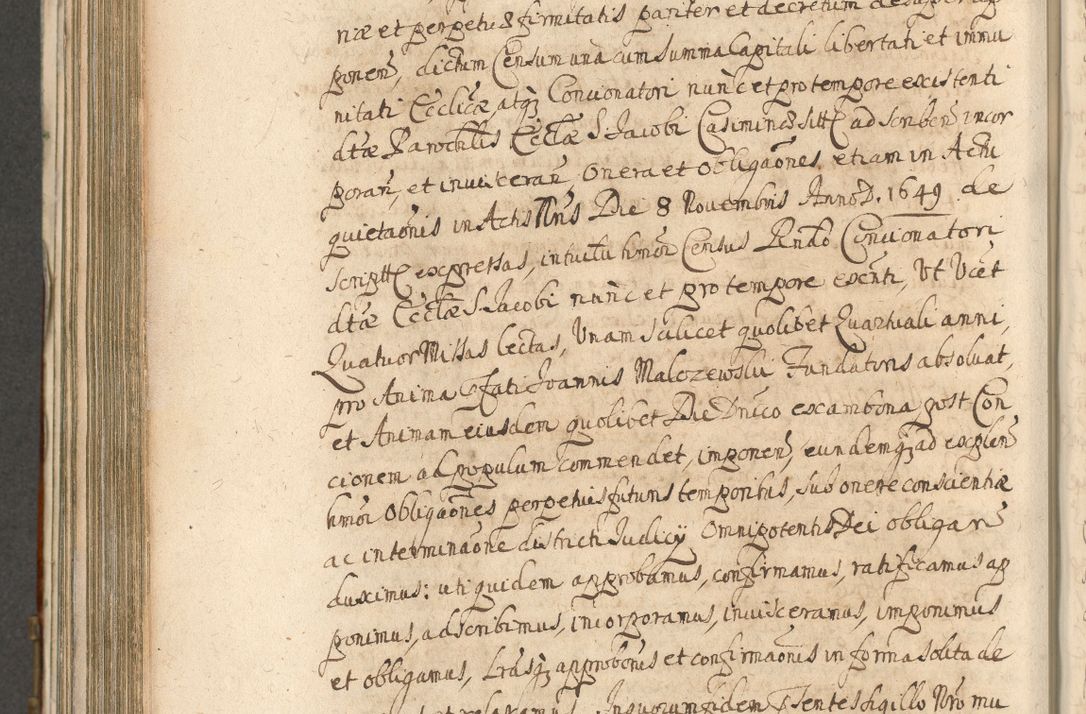 riæ et perpetuæ firmitatis pariter et decretum desuper ap
ponen̄, dictum Censum unà cum summa Capitali libertati et immu
nitati Ecclicæ, atqꝫ Concionatori nunc et pro tempore existenti
dtæ Parochlis Ecclæ S. Jacobi Casimiriæ sitt̄ ad scriben̄ incor
poran̄, et inuisceran̄ onera et obligaōnes etiam in Actu
quietaōnis in Actis Nr̄is Die 8 Nouembris Anno D. 1649. de
scriptt̄ expressas, intuitu hmōi Census Rndo Concionatori
dtæ Ecclæ S. Jacobi nunc et pro tempore exn̄ti, Ut Vcēt
Quatuor Missas lectas, Unam scilicet quolibet Quartuali anni,
pro Anima Pfati Joannis Malczewski Fundatoris absoluat,
et Animam eiusdem quolibet Die Dnīco ex ambona post Con
cionem ad populum commendet, imponen̄, eundemqꝫ ad explen̄
hmōi Obligaōnes perpetuis futuris temporibus, sub onere conscientiæ
ac interminaōne districti Judicij Omnipotentis Dei obligar̄
duximus: uti quidem approbamus, confirmamus, ratificamus ap
ponimus, adscribimus, incorporamus, inuisceramus, imponimus
et obligamus, Lrāsqꝫ approbōnis et confirmaōnis in forma solita de
et relaxamus. In quorum fidem Pntes sigillo Nr̄o mu